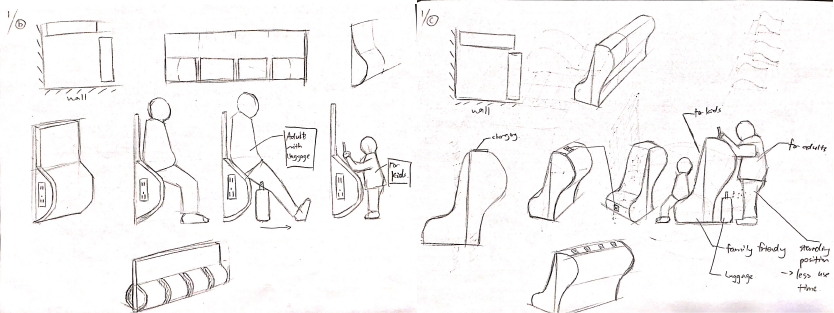 1/b
wall
Adult
with
luggage
for
kids.
1/c
wall
charging
for kids
for adults
family friendly
luggage
standing
position
→ less use
time.